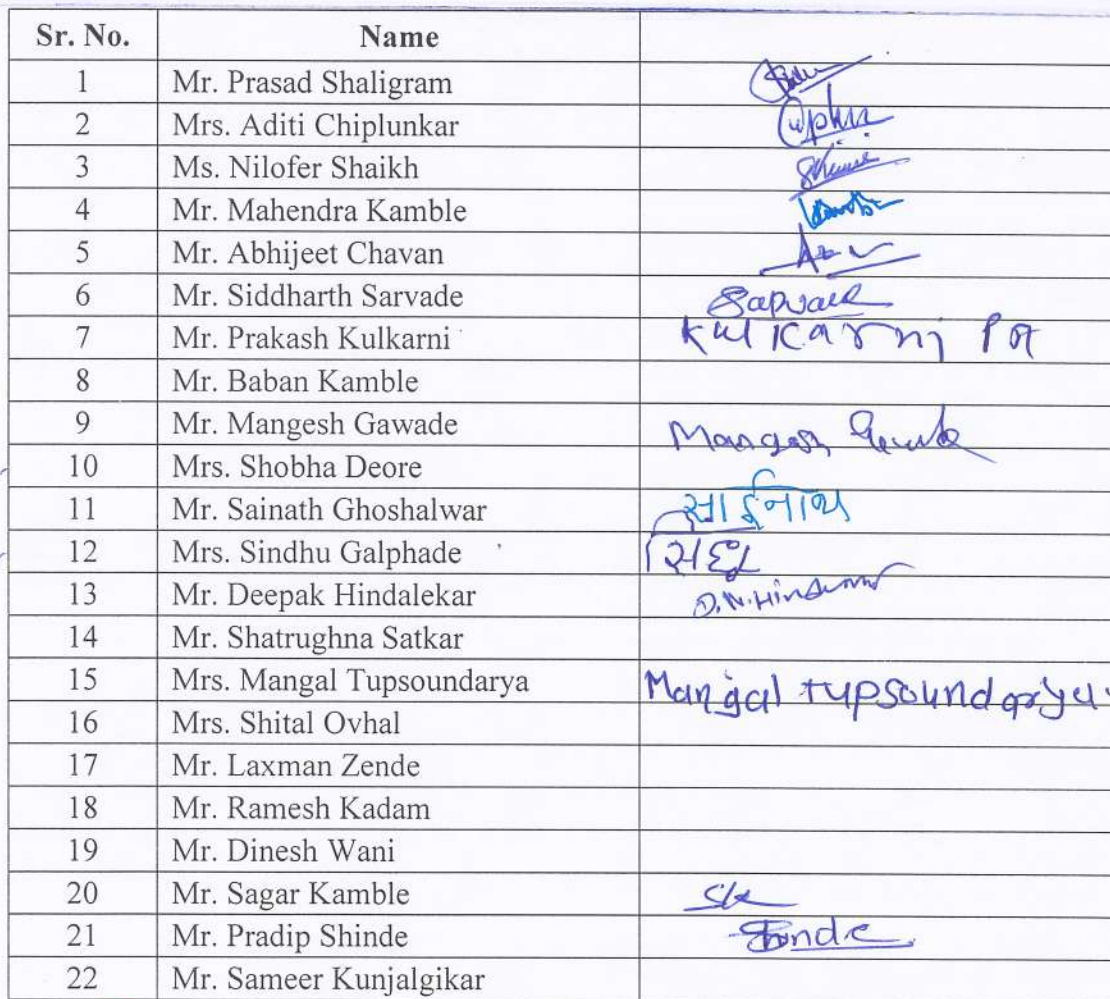 Sr. No. Name
1 Mr. Prasad Shaligram
2 Mrs. Aditi Chiplunkar
3 Ms. Nilofer Shaikh
4 Mr. Mahendra Kamble
5 Mr. Abhijeet Chavan
6 Mr. Siddharth Sarvade
7 Mr. Prakash Kulkarni Kulkarni
8 Mr. Baban Kamble
9 Mr. Mangesh Gawade Mangesh
10 Mrs. Shobha Deore
11 Mr. Sainath Ghoshalwar साईनाथ
12 Mrs. Sindhu Galphade
13 Mr. Deepak Hindalekar D.N.
14 Mr. Shatrughna Satkar
15 Mrs. Mangal Tupsoundarya Mangal tupsoundarya
16 Mrs. Shital Ovhal
17 Mr. Laxman Zende
18 Mr. Ramesh Kadam
19 Mr. Dinesh Wani
20 Mr. Sagar Kamble
21 Mr. Pradip Shinde Shinde
22 Mr. Sameer Kunjalgikar